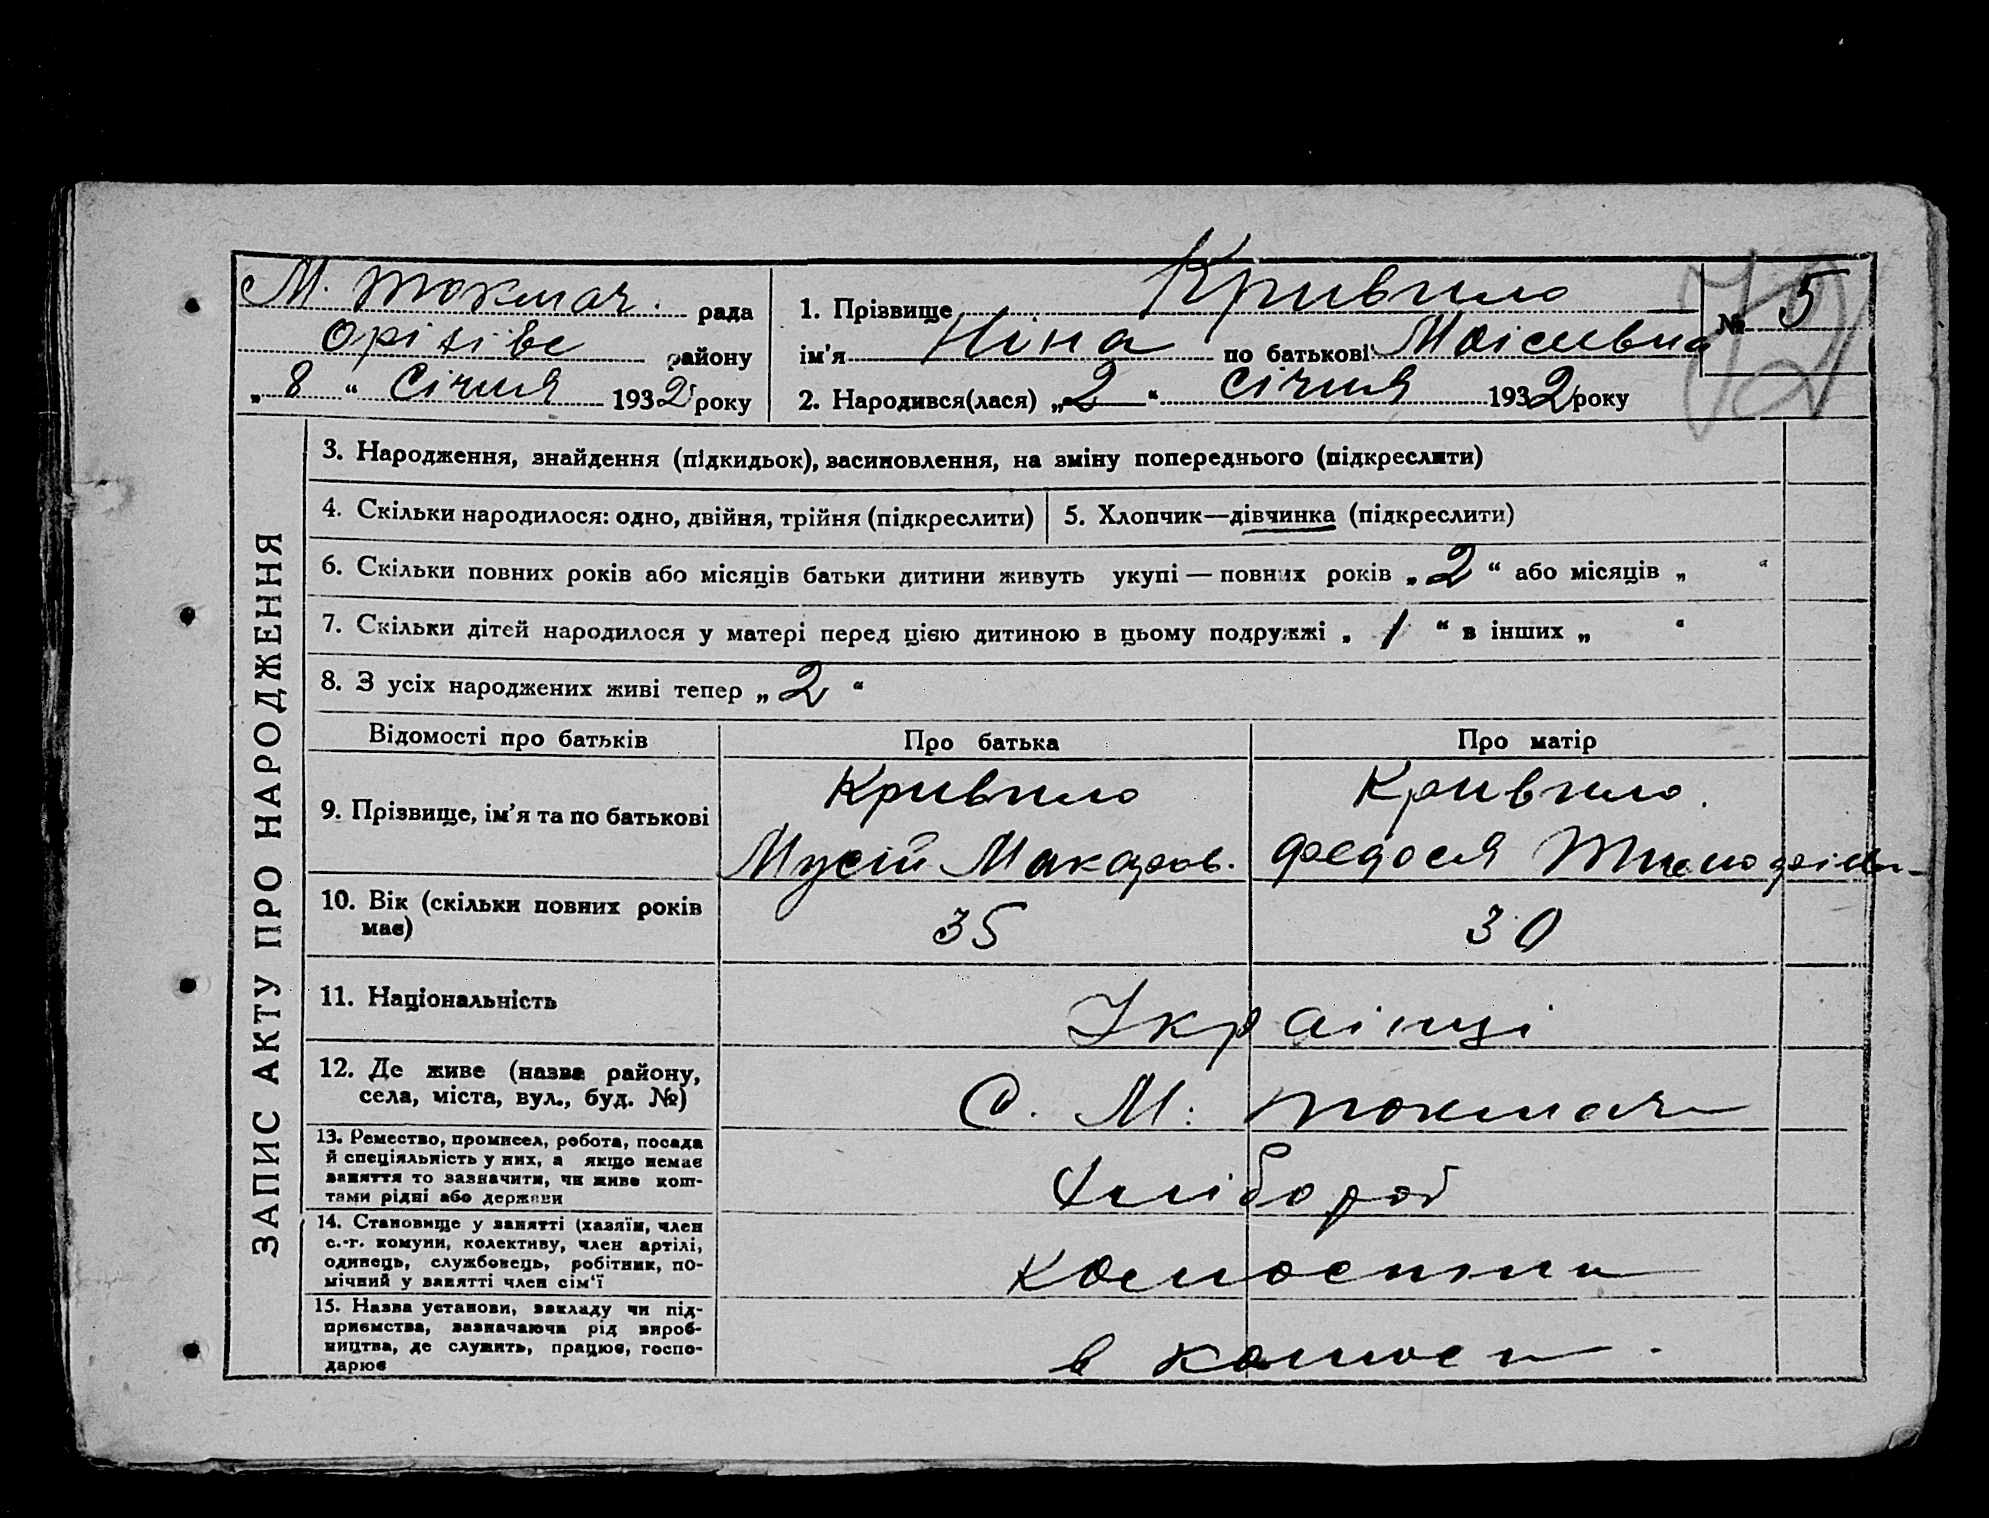 М. Токмач. рада
Оріхівс району
„ 8 “ Січня 1932 року
1. Прізвище Кривило
ім'я Ніна по батькові Моісеївна
№ 5
72
2. Народився(лася) „ 2 “ Січня 1932 року
ЗАПИС АКТУ ПРО НАРОДЖЕННЯ
3. Народження, знайдення (підкидьок), засиновлення, на зміну попереднього (підкреслити)
4. Скільки народилося: одно, двійня, трійня (підкреслити)
5. Хлопчик—дівчинка (підкреслити)
6. Скільки повних років або місяців батьки дитини живуть укупі — повних років „ 2 “ або місяців „ “
7. Скільки дітей народилося у матері перед цією дитиною в цьому подружжі „ 1 “ в інших „ “
8. З усіх народжених живі тепер „ 2 “
Відомості про батьків
Про батька
Про матір
9. Прізвище, ім'я та по батькові
Кривило
Мусій Макаров.
Кривило.
Федося
10. Вік (скільки повних років
має)
35
30
11. Національність
Українці
12. Де живе (назва району,
села, міста, вул., буд. №)
С. М. Токмач
13. Ремество, промисел, робота, посада
й спеціяльність у них, а якщо немає
заняття то зазначити, чи живе кош-
тами рідні або держави
Хлібороб
14. Становище у занятті (хазяїн, член
с.-г. комуни, колективу, член артілі,
одинець, службовець, робітник, по-
мічний у занятті член сім'ї
колгоспник
15. Назва установи, закладу чи під-
приємства, зазначаючи рід вироб-
ництва, де служить, працює, госпо-
дарює
в колгоспі.